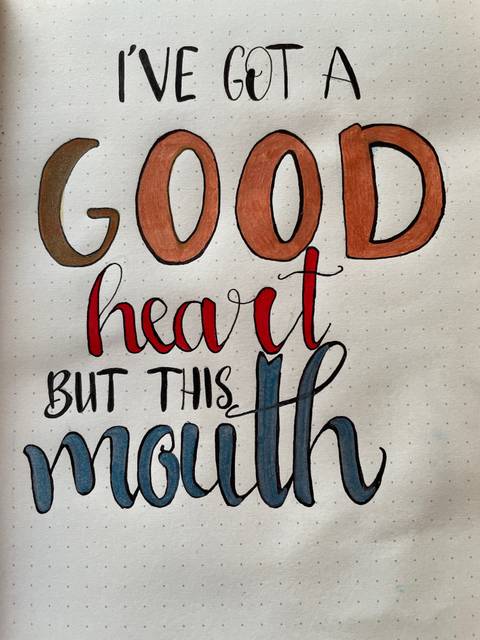 I'VE GOT A
GOOD
heart
BUT THIS
mouth